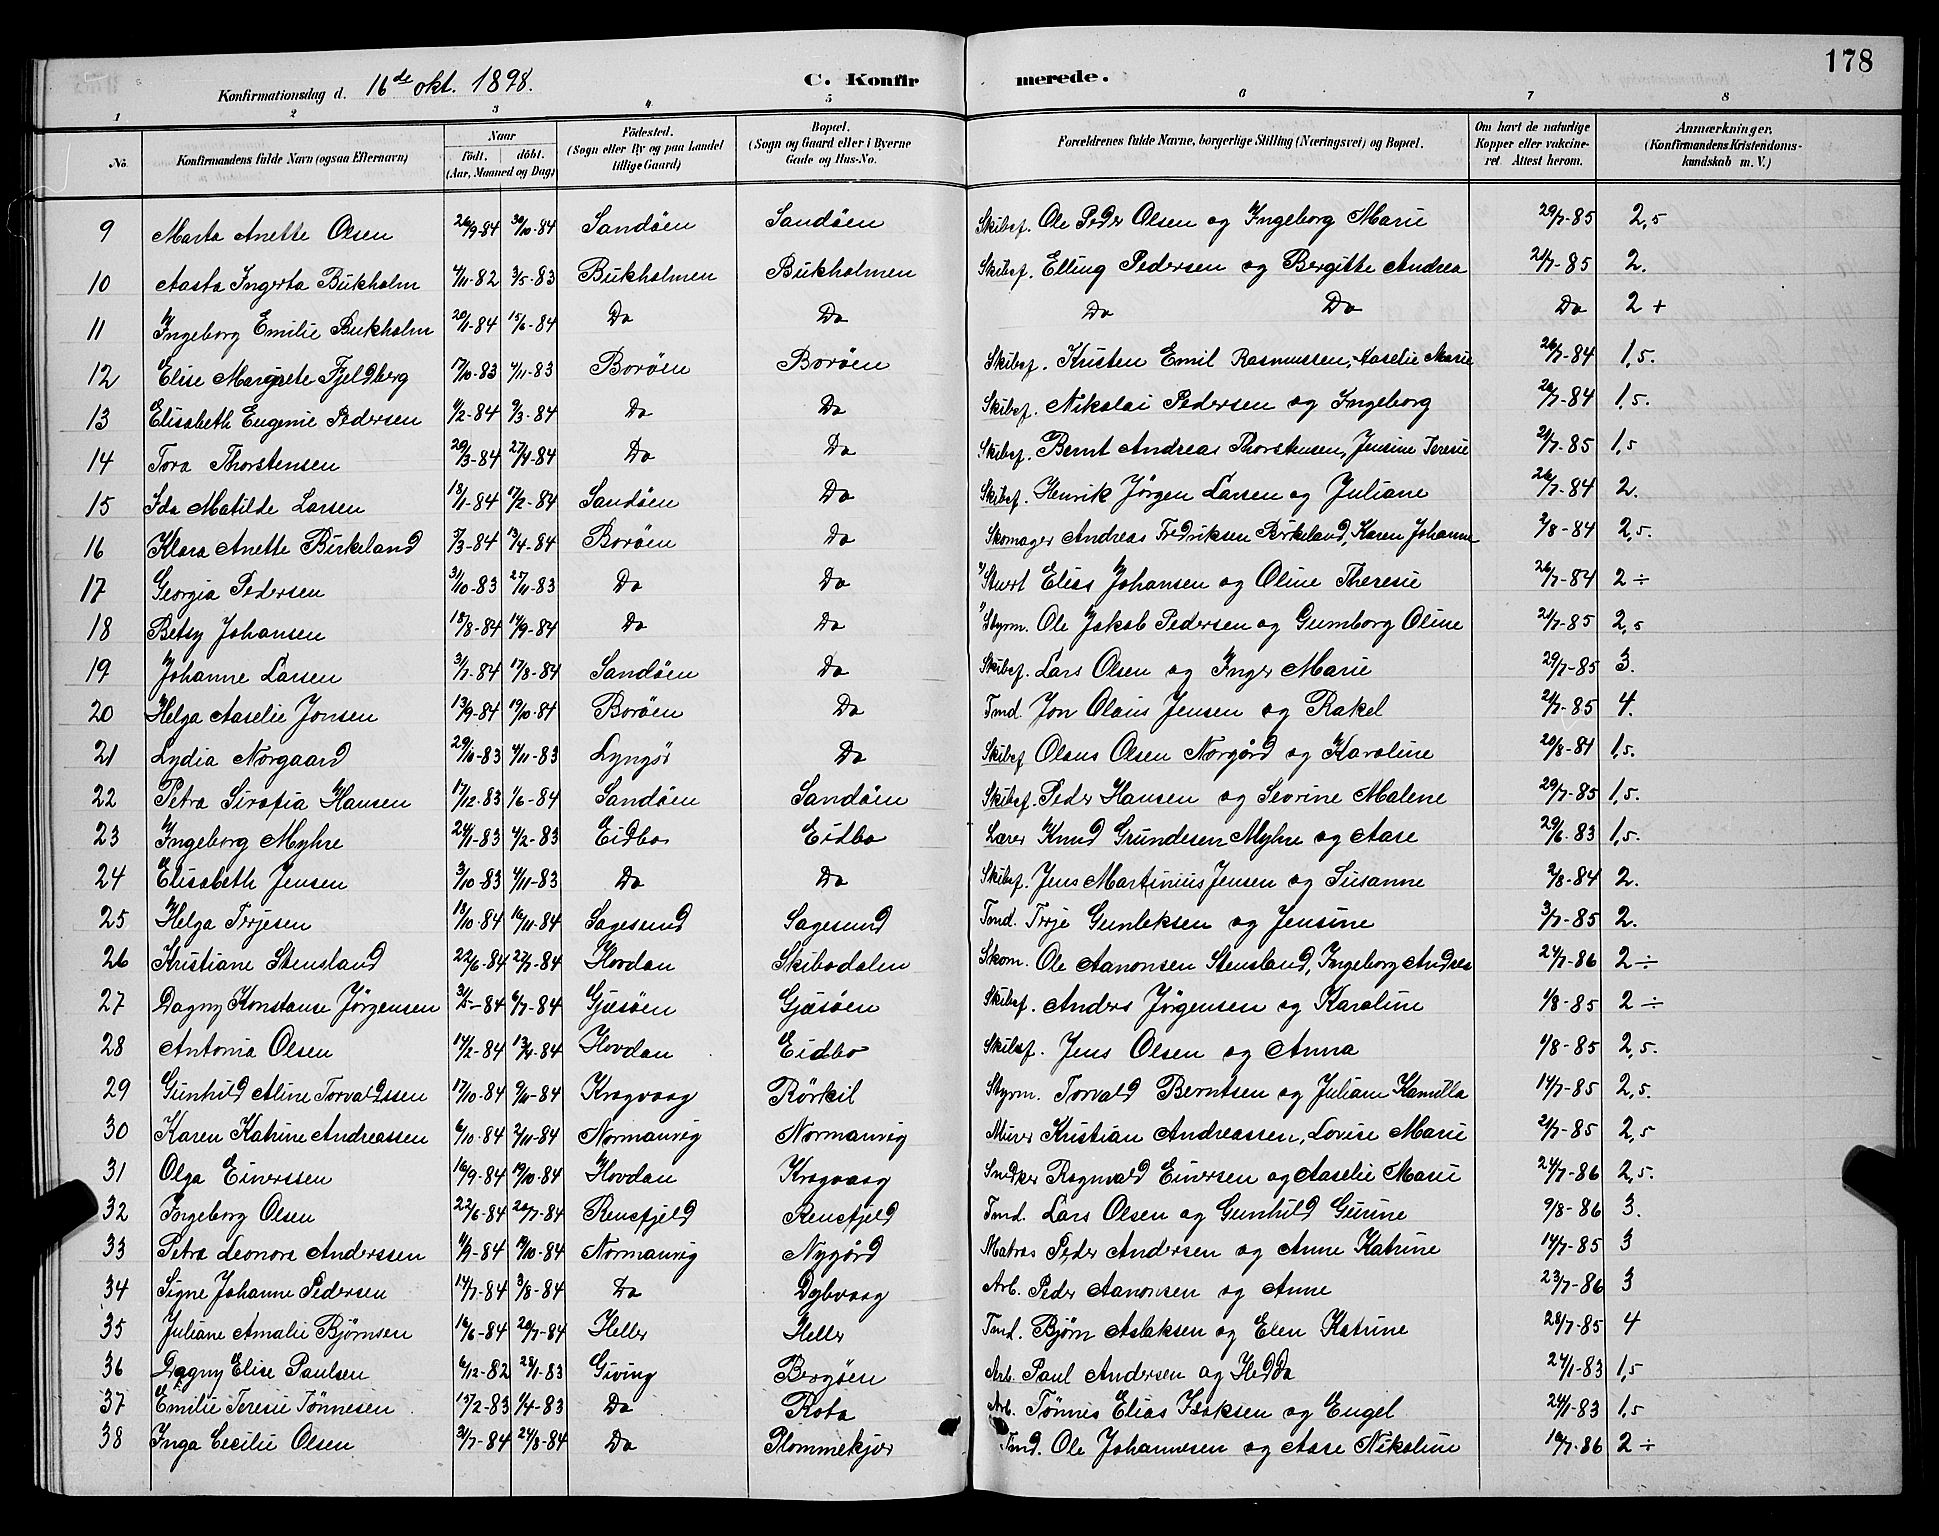 178
Konfirmationsdag d. 16de okt. 1898.
C. Konfirmerede.
1 2 3 4 5 6 7 8
No. Konfirmandens fulde Navn (ogsaa Efternavn) Naar födt. döbt. (Aar, Maaned og Dag) Födested. (Sogn eller By og paa Landet tillige Gaard) Bopæl. (Sogn og Gaard eller i Byerne Gade og Hus-No. Forældrenes fulde Navne, borgerlige Stilling (Næringsvei) og Bopæl. Om havt de naturlige Kopper eller vakcineret Attest herom. Anmærkninger. (Konfirmandens Kristendomskundskab m. V.)
9 Marta Anette Olsen 26/9-84 30/10-84 Sandöen Sandöen Skibsf. Ole Peder Olsen og Ingeborg Marie 29/7-85 2,5
10 Aasta Ingerta Bukholm 4/11-82 3/5-83 Bukholmen Bukholmen Skibsf. Elling Pedersen og Bergitte Andrea 21/7-85 2.
11 Ingeborg Emilie Bukholm 20/1-84 15/6-84 Do Do Do Do Do 2 +
12 Elise Margrete Fjeldberg 17/10-83 4/11-83 Boröen Boröen Skibsf. Kristen Emil Rasmussen, Aaselie Marie 26/7-84 1,5.
13 Elisabeth Eugenie Pedersen 11/2-84 9/3-84 Do Do Skibsf. Nikolai Pedersen og Ingeborg 26/7-84 1,5.
14 Tora Thorstensen 20/3-84 27/4-84 Do Do Skibsf. Bernt Andreas Thorstensen, Jensine Teresie 21/7-85 1,5
15 Ida Matilde Larsen 18/1-84 17/2-84 Sandöen Do Skibsf. Henrik Jörgen Larsen og Juliane 26/7-84 2.
16 Klara Anette Birkeland 5/3-84 13/4-84 Boröen Do Skomager Andreas Fredriksen Birkeland, Karen Johanne 2/8-84 2,5.
17 Georgia Pedersen 31/10-83 25/11-83 Do Do Stuert Elias Johansen og Oline Theresie 26/7-84 2 ÷
18 Betsy Johansen 18/8-84 14/9-84 Do Do Styrm. Ole Jakob Pedersen og Gumborg Oline 21/7-85 2,5
19 Johanne Larsen 3/7-84 17/8-84 Sandöen Do Skibsf. Lars Olsen og Inger Marie 29/7-85 3.
20 Helga Aaselie Jonsen 13/9-84 19/10-84 Boröen Do Tmd. Jon Olaus Jensen og Rakel 21/7-85 4.
21 Lydia Norgaard 29/10-83 4/11-83 Lyngör Do Skibsf Olaus Olsen Norgård og Karoline 20/8-84 1,5.
22 Petra Sirafia Hansen 17/12-83 1/6-84 Sandöen Sandöen Skibsf. Peder Hansen og Sevrine Malene 29/7-85 1,5.
23 Ingeborg Myhre 24/1-83 4/2-83 Eidbo Eidbo Lærer Knud Grundesen Myhre og Aase 29/6-83 1,5.
24 Elisabeth Jensen 3/10-83 4/11-83 Do Do Skibsf. Jens Martinius Jensen og Susanne 2/8-84 2.
25 Helga Terjesen 13/10-84 16/11-84 Sagesund Sagesund Tmd. Terje Gunleksen og Jensine 3/7-85 2.
26 Kristiane Stensland 22/6-84 27/7-84 Hovdan Skibsdalen Skom. Ole Aanonsen Stensland, Ingeborg Andrea 24/7-86 2 ÷
27 Dagny Konstanse Jörgensen 31/5-84 6/7-84 Gjæsöen Gjæsöen Skibsf. Anders Jörgensen og Karoline 1/8-85 2 ÷
28 Antonia Olsen 14/2-84 13/4-84 Hovdan Eidbo Skibsf. Jens Olsen og Anna 1/8-85 2,5.
29 Gunhild Aline Torvaldssen 17/10-84 9/11-84 Kragvaag Rörkil Styrm. Torvald Berntsen og Juliane Kamilla 14/7-85 2,5.
30 Karen Katrine Andreassen 6/10-84 2/11-84 Normanvig Normanvig Murer Kristian Andreassen, Lovise Marie 21/7-85 2,5
31 Olga Einerssen 16/9-84 19/10-84 Hovdan Kragvaag Snedker Ragnvald Einersen og Aaselie Marie 24/7-86 2,5.
32 Ingeborg Olsen 22/6-84 20/7-84 Rensfjeld Rensfjeld Tmd. Lars Olsen og Gunhild Gurine 9/8-86 3.
33 Petra Leonora Anderssen 4/9-84 19/10-84 Normanvig Nygård Matros Peder Andersen og Anne Katrine 14/7-85 3
34 Signe Johanne Pedersen 14/7-84 3/8-84 Do Dybvaag Arb. Peder Aanonsen og Anne 23/7-86 3
35 Juliane Amalie Björnsen 16/6-84 20/7-84 Heller Heller Tmd. Björn Aslaksen og Elen Katrine 28/7-85 4
36 Dagny Elise Paulsen 6/12-82 28/1-83 Giving Bergöen Arb. Paul Andersen og Hedda 24/1-83 1,5
37 Emilie Teresie Tönnesen 15/2-83 1/4-83 Do Rota Arb. Tönnes Elias Isaksen og Engel 24/1-83 1,5
38 Inga Cecilie Olsen 31/7-84 24/8-84 Do Plommekjær Tmd. Ole Johannesen og Aase Nikoline 19/7-86 2 ÷